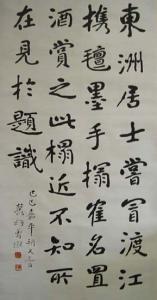 東洲居士嘗冒渡江
攜氊墨手搨隺名置
酒賞之此榻近不知所
在見於題識